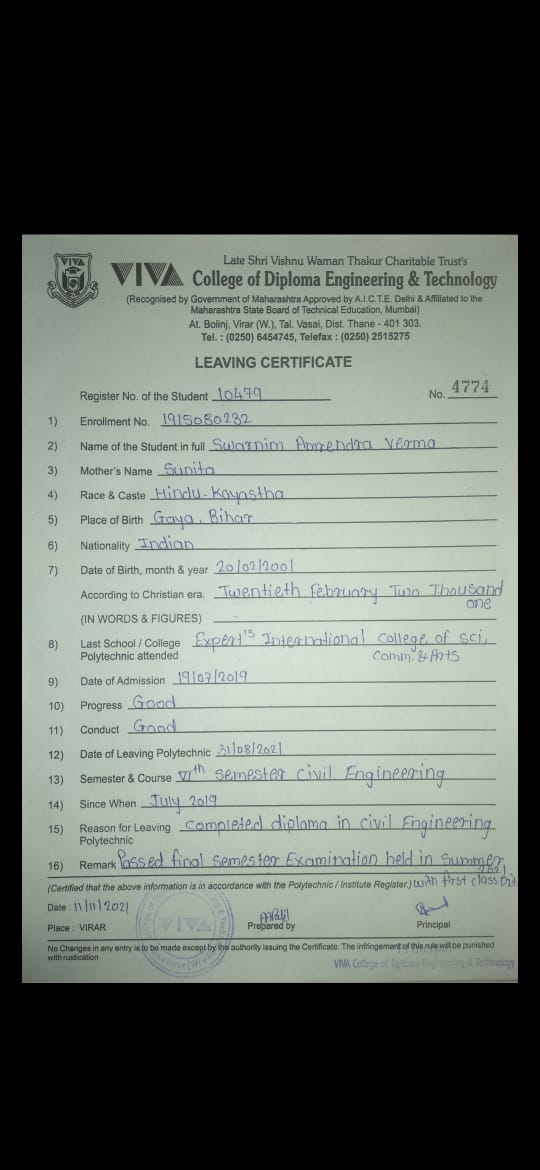 VIVA
Late Shri Vishnu Waman Thakur Charitable Trust's
VIVA College of Diploma Engineering & Technology
(Recognised by Government of Maharashtra Approved by A.I.C.T.E. Delhi & Affiliated to the
Maharashtra State Board of Technical Education, Mumbai)
At. Bolinj, Virar (W.), Tal. Vasai, Dist. Thane - 401 303.
Tel. : (0250) 6454745, Telefax : (0250) 2515275
LEAVING CERTIFICATE
Register No. of the Student 10479 No. 4774
1) Enrollment No. 1915080232
2) Name of the Student in full Swarnim Amrendra Verma
3) Mother's Name Sunita
4) Race & Caste Hindu-Kayastha
5) Place of Birth Gaya, Bihar
6) Nationality Indian
7) Date of Birth, month & year 20/02/2001
According to Christian era. Twentieth February Two Thousand
one
(IN WORDS & FIGURES)
8) Last School / College Expert's International college of sci,
Polytechnic attended Comm. & Arts
9) Date of Admission 19/07/2019
10) Progress Good
11) Conduct Good
12) Date of Leaving Polytechnic 31/08/2021
13) Semester & Course VIth semester civil Engineering
14) Since When July 2019
15) Reason for Leaving completed diploma in civil Engineering
Polytechnic
16) Remark Passed final semester Examination held in summer
2021
(Certified that the above information is in accordance with the Polytechnic / Institute Register.) with first class Dist.
Date : 11/11/2021
Place : VIRAR Prepared by Principal
VIVA
Virar (W)
No Changes in any entry is to be made except by the authority issuing the Certificate. The infringement of this rule will be punished
with rustication
VIVA College of Diploma Engineering & Technology